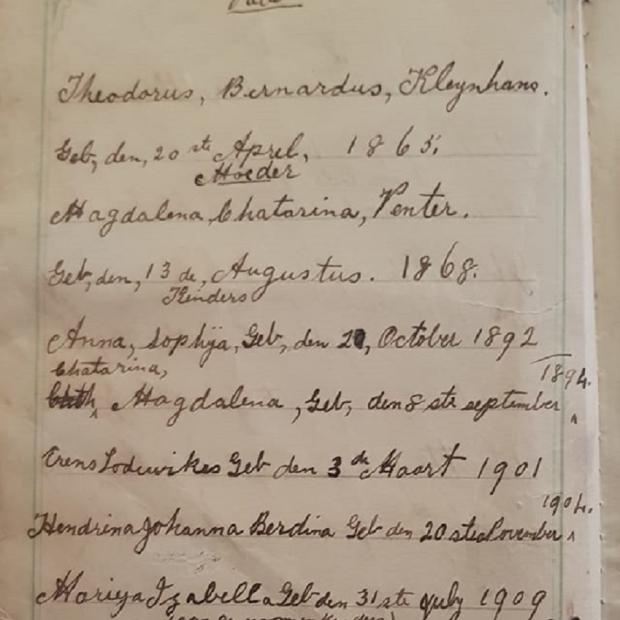 Theodorus, Bernardus, Kleynhans.
Geb, den, 20 ste April, 1865.
Moeder
Magdalena, Chatarina, Venter.
Geb, den, 13 de, Augustus. 1868.
Kinders
Anna, Sophija, Geb, den 20, October 1892
Chatarina,
1894.
Magdalena, Geb, den 8 ste september
Lodewikes Geb den 3 de Maart 1901
1904.
Hendrina Johanna Berdina Geb den 20 ste November
Mariya Izabella Geb den 31 ste july 1909